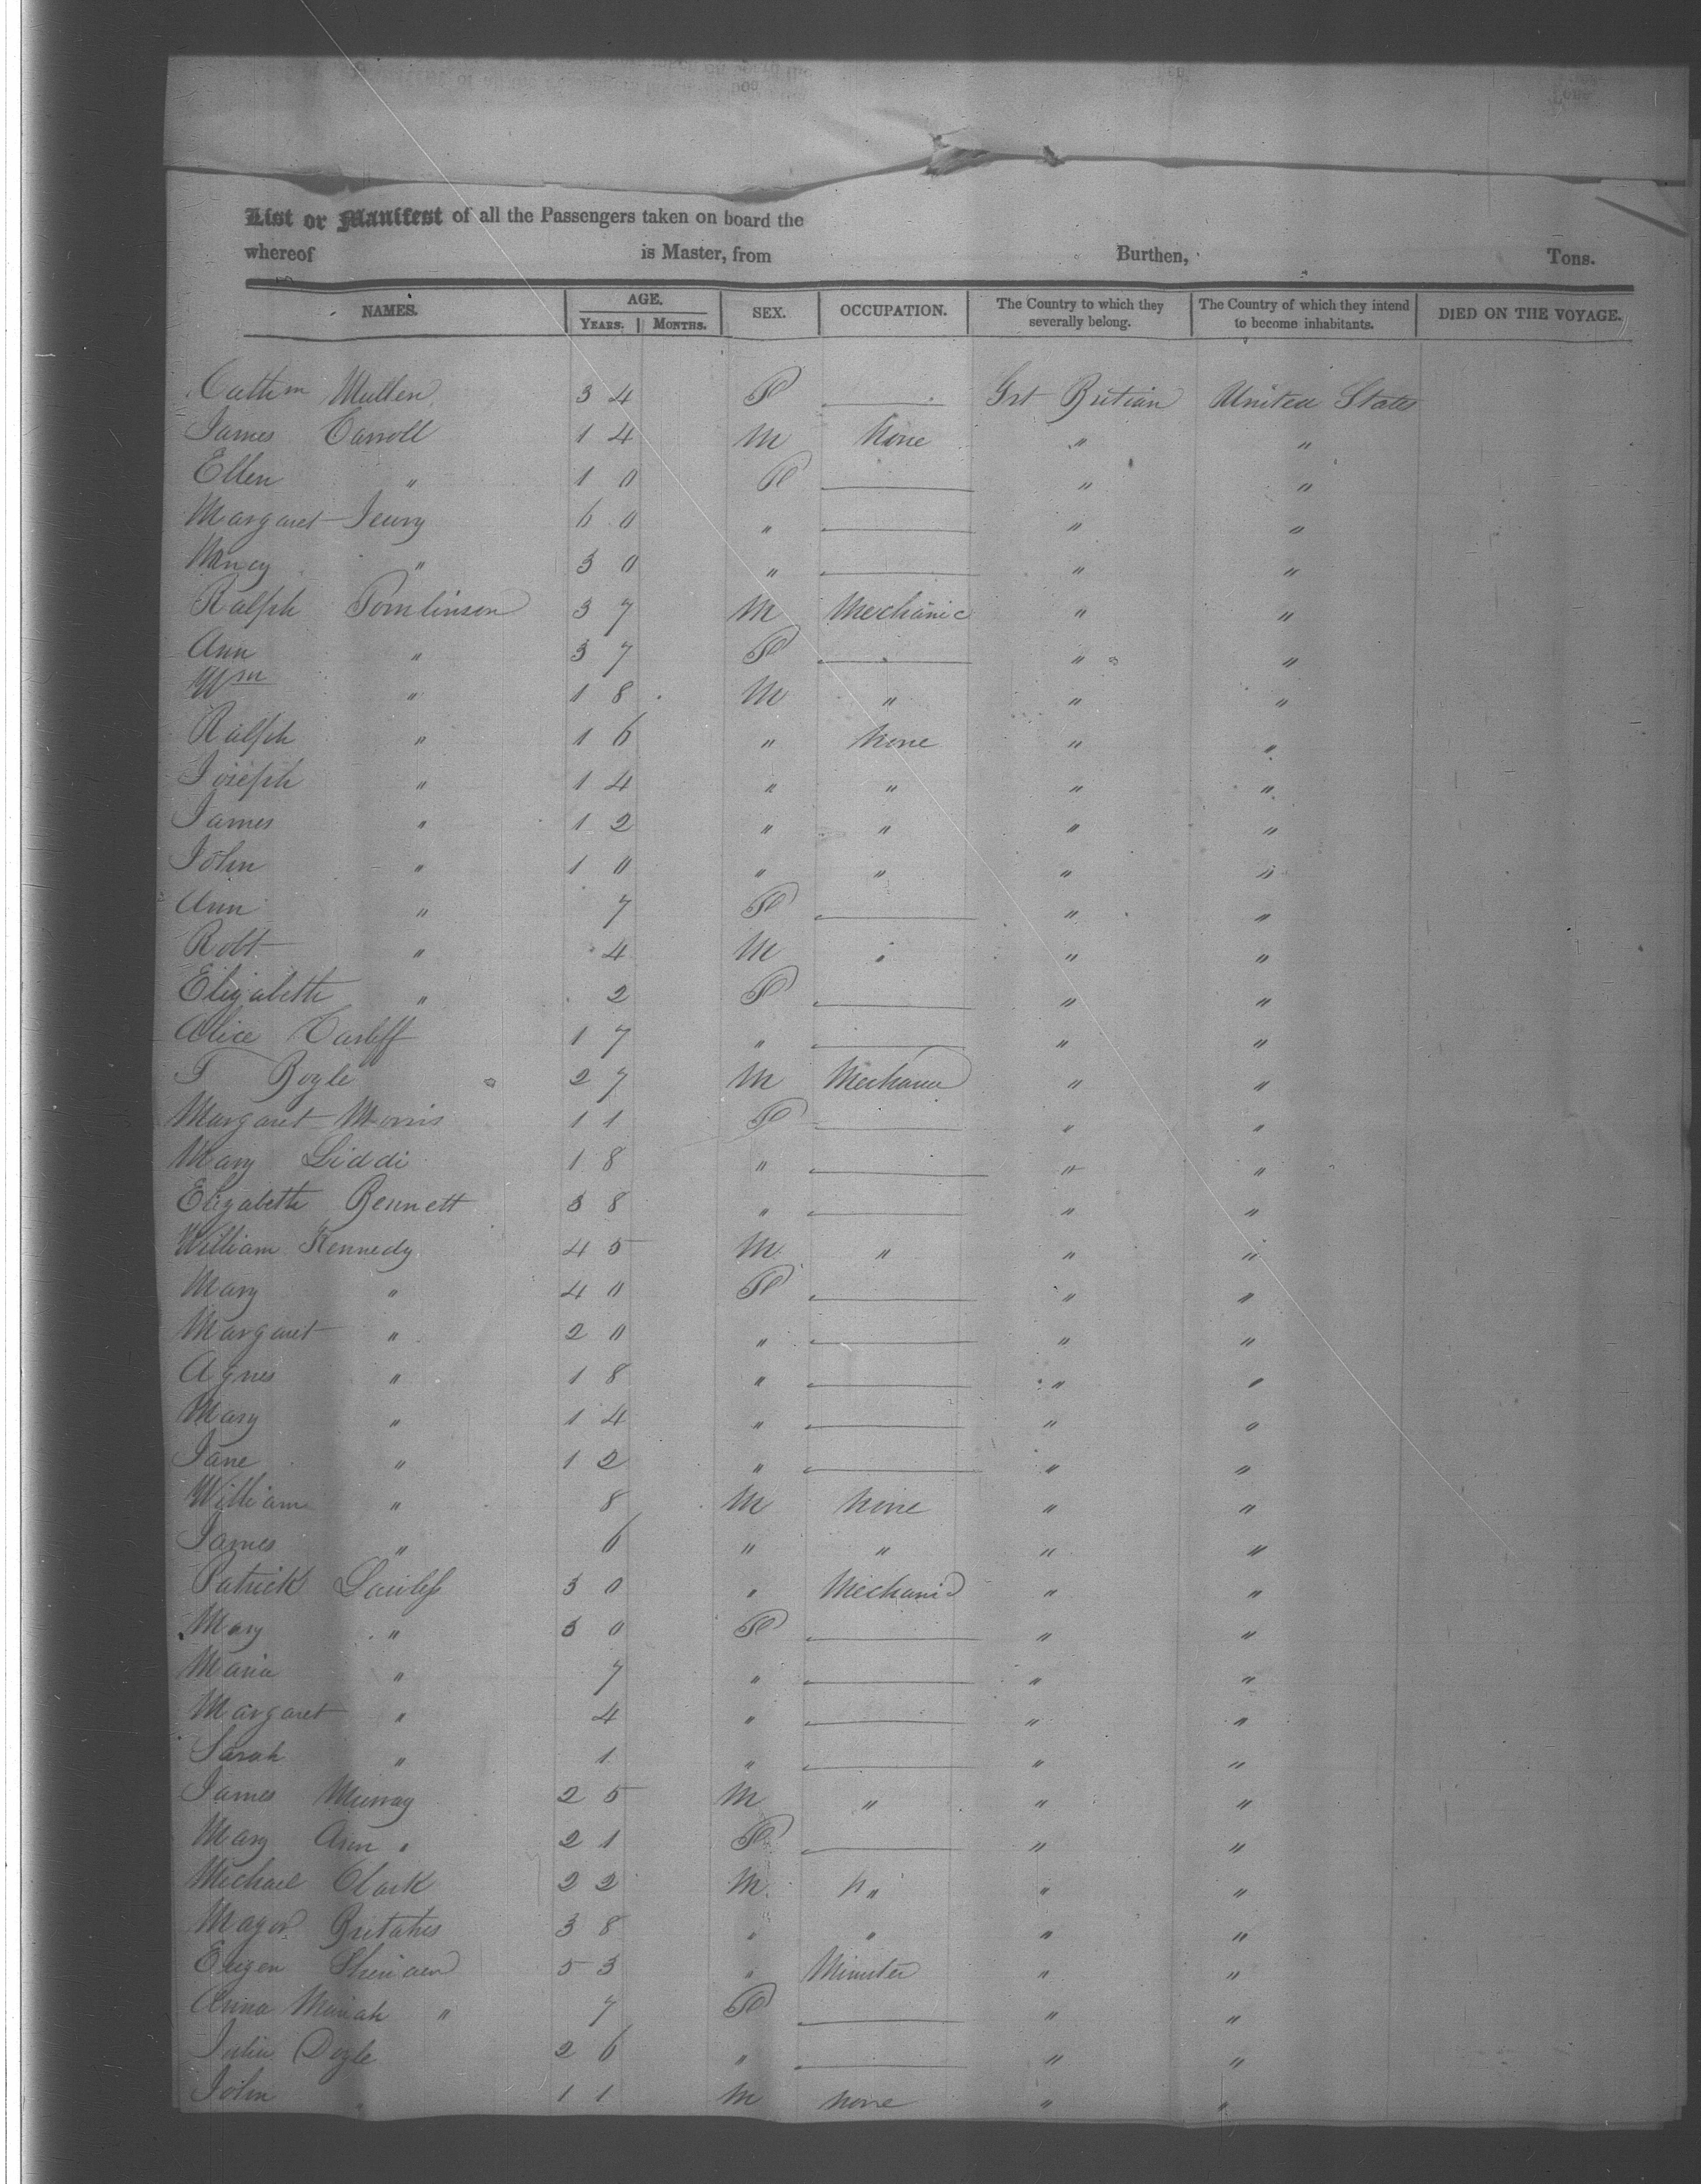 List or Manifest of all the Passengers taken on board the
whereof is Master, from Burthen, Tons.
NAMES. AGE. SEX. OCCUPATION. The Country to which they severally belong. The Country of which they intend to become inhabitants. DIED ON THE VOYAGE.
YEARS. MONTHS.
Mullen 34 F —— Grt Britian United States
James Carroll 14 M None " "
Ellen " 10 F —— " "
Margaret 60 " —— " "
" 30 " —— " "
Ralph Tomlinson 37 M Mechanic " "
Ann " 37 F —— " "
Wm " 18 M " " "
Ralph " 16 " None " "
Joseph " 14 " " " "
James " 12 " " " "
John " 10 " " " "
Ann " 7 F —— " "
Robt " 4 M " " "
Elizabeth " 2 F —— " "
Alice 17 " —— " "
T Boyle 27 M Mechanic " "
Margaret Morris 11 F —— " "
Mary Liddi 18 " —— " "
Elizabeth Bennett 38 " —— " "
William Kennedy 45 M " " "
Mary " 40 F —— " "
Margaret " 20 " —— " "
Agnes " 18 " —— " "
Mary " 14 " —— " "
Jane " 12 " —— " "
William " 8 M None " "
James " 6 " " " "
Patrick Lawless 30 " Mechanic " "
Mary " 30 F —— " "
Maria " 7 " —— " "
Margaret " 4 " —— " "
Sarah " 1 " —— " "
James Murray 25 M " " "
Mary Ann " 21 F —— " "
Michael Clark 22 M " " "
38 " " " "
Eugen 53 " Minister " "
Anna Mariah " 7 F —— " "
Julia Doyle 26 " —— " "
John " 11 M None " "